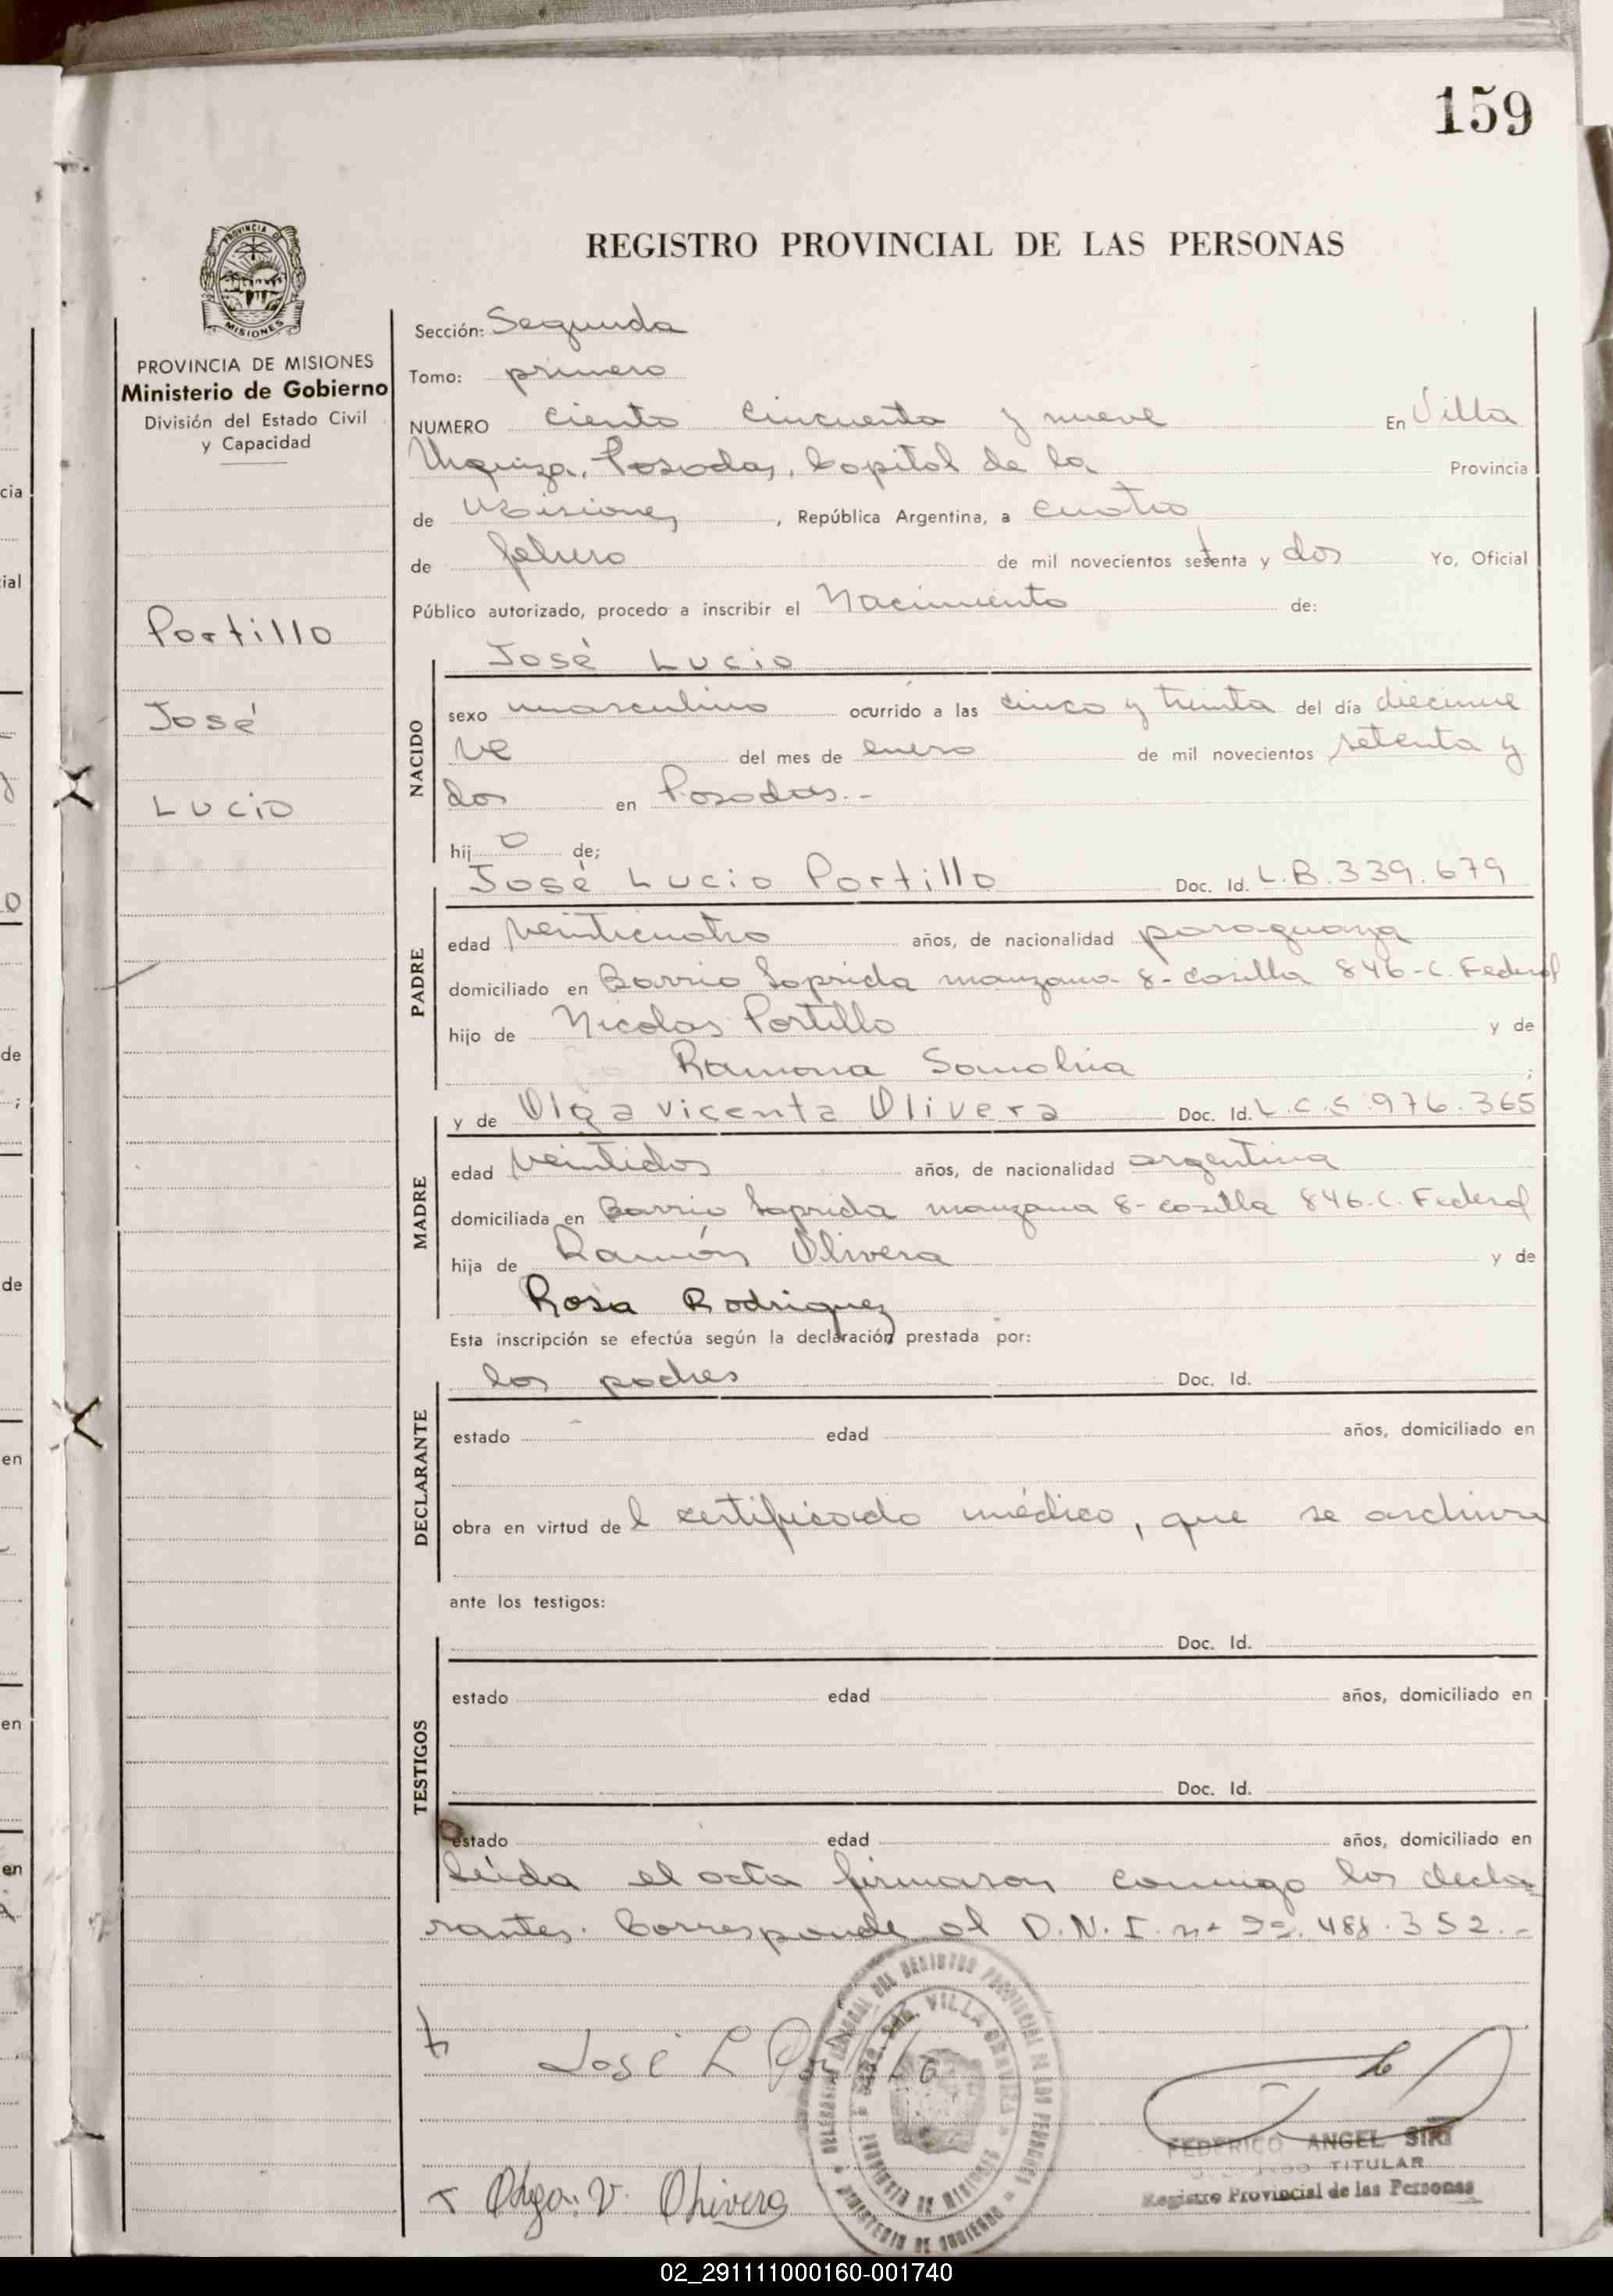 159
PROVINCIA DE
MISIONES
REGISTRO PROVINCIAL DE LAS PERSONAS
PROVINCIA DE MISIONES
Ministerio de Gobierno
División del Estado Civil
y Capacidad
Portillo
José
Lucio
Sección: Segunda
Tomo: primero
NUMERO ciento cincuenta y nueve En Villa
Urquiza, Posadas, Capital de la Provincia
de Misiones, República Argentina, a cuatro
de febrero de mil novecientos setenta y dos Yo, Oficial
Público autorizado, procedo a inscribir el Nacimiento de:
José Lucio
NACIDO
sexo masculino ocurrido a las cinco y treinta del día diecinue
ve del mes de enero de mil novecientos setenta y
dos en Posadas.-
hijo de;
José Lucio Portillo Doc. Id. L.B.339.679
PADRE
edad veinticuatro años, de nacionalidad paraguaya
domiciliado en Barrio Laprida manzana 8-casilla 846-C. Federal
hijo de Nicolas Portillo y de
Ramona ;
y de Olga Vicenta Olivera Doc. Id. L.C.5.976.365
MADRE
edad veintidos años, de nacionalidad argentina
domiciliada en Barrio Laprida manzana 8-casilla 846-C. Federal
hija de Ramón Olivera y de
Rosa Rodriguez
Esta inscripción se efectúa según la declaración prestada por:
los padres Doc. Id.
DECLARANTE
estado edad años, domiciliado en
obra en virtud del certificado médico, que se archiva
ante los testigos:
Doc. Id.
TESTIGOS
estado edad años, domiciliado en
Doc. Id.
estado edad años, domiciliado en
Leída el acta firmaron conmigo los decla
rantes. Corresponde al D.N.I. nº 22.488.352.-
José L Portillo
DELEGACION GENERAL DEL REGISTRO PROVINCIAL DE LAS PERSONAS
MINISTERIO DE GOBIERNO
VILLA URQUIZA
PROVINCIA DE MISIONES
FEDERICO ANGEL SIRI
TITULAR
Registro Provincial de las Personas
Olga. V. Olivera
cia
ial
o
de
;
de
en
en
en
02_291111000160-001740